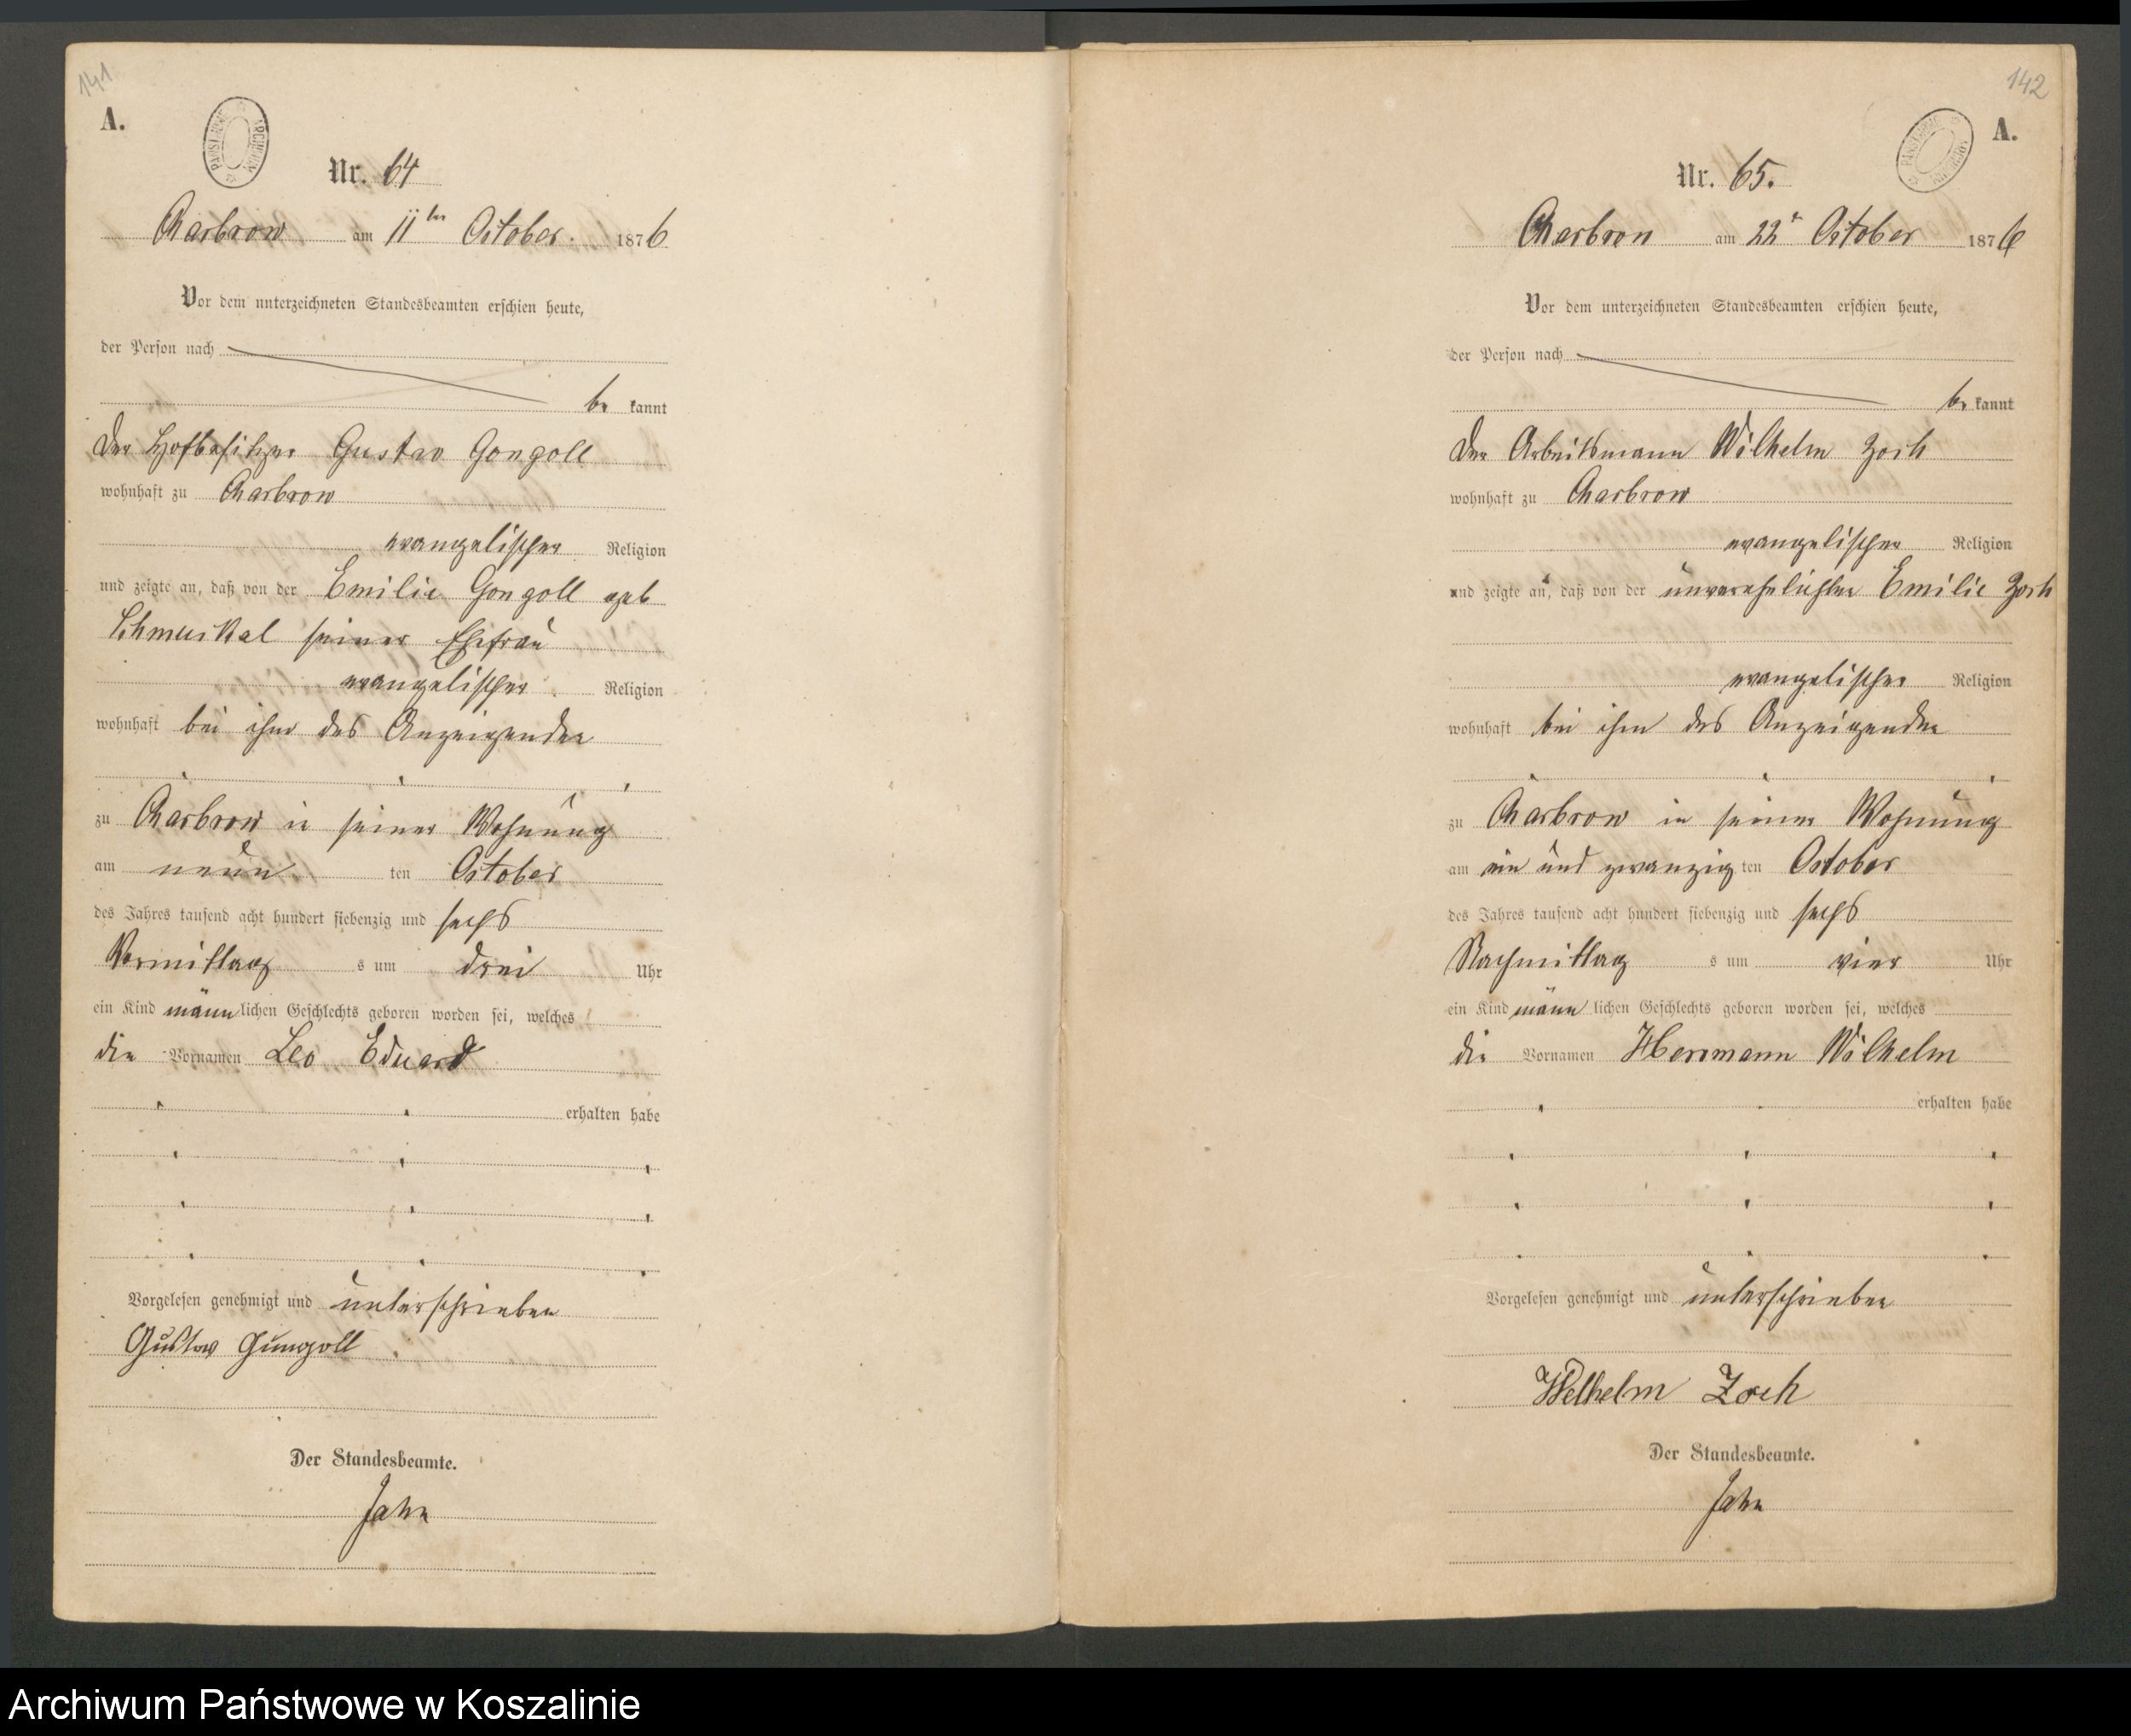 141
A.
PAŃSTWOWE ARCHIWUM
Nr. 64
Charbrow am 11ten October 1876
Vor dem unterzeichneten Standesbeamten erschien heute,
der Person nach
be kannt
Der Hofbesitzer Gustav Gongoll
wohnhaft zu Charbrow
evangelischer Religion
und zeigte an, daß von der Emilie Gongoll geb
Schmuckal seiner Ehefrau
evangelischer Religion
wohnhaft bei ihm des Anzeigenden
zu Charbrow in seiner Wohnung
am neun ten October
des Jahres tausend acht hundert siebenzig und sechs
Vormittag s um drei Uhr
ein Kind männ lichen Geschlechts geboren worden sei, welches
die Vornamen Leo Eduard
erhalten habe
Vorgelesen genehmigt und unterschrieben
Gustav Gungoll
Der Standesbeamte.
Jahn
142
A.
PAŃSTWOWE ARCHIWUM
Nr. 65.
Charbrow am 22t October 1876
Vor dem unterzeichneten Standesbeamten erschien heute,
der Person nach
be kannt
Der Arbeitsmann Wilhelm Zoch
wohnhaft zu Charbrow
evangelischer Religion
und zeigte an, daß von der unverehelichten Emilie Zoch
evangelischer Religion
wohnhaft bei ihm des Anzeigenden
zu Charbrow in seiner Wohnung
am ein und zwanzig ten October
des Jahres tausend acht hundert siebenzig und sechs
Nachmittag s um vier Uhr
ein Kind männ lichen Geschlechts geboren worden sei, welches
die Vornamen Herrmann Wilhelm
erhalten habe
Vorgelesen genehmigt und unterschrieben
Wilhelm Zoch
Der Standesbeamte.
Jahn
Archiwum Państwowe w Koszalinie